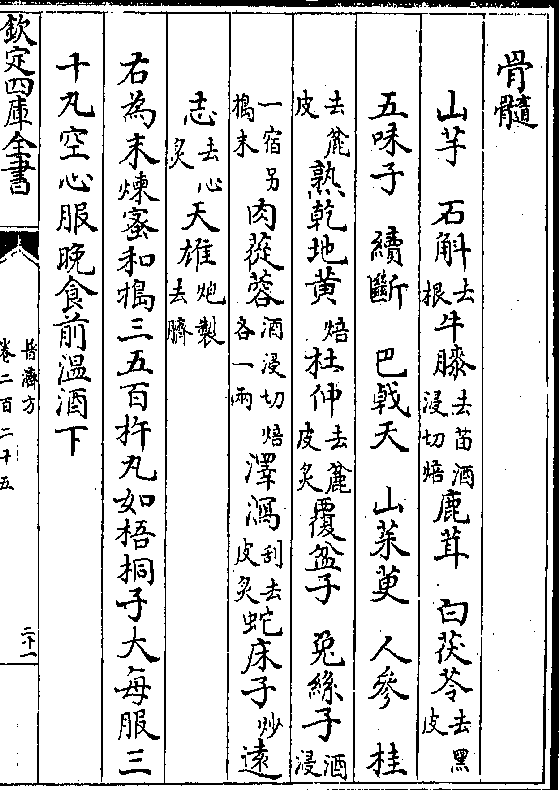 骨髓
山芋 石斛去根牛膝去苗酒浸切焙鹿茸 白茯苓去黑皮
五味子 續斷 巴戟天 山茱萸 人參 桂
去麄皮熟乾地黄焙杜仲去麄皮炙覆盆子 兔絲子酒浸
一宿另搗末肉蓯蓉酒浸切焙各一兩澤瀉刮去皮炙蛇床子炒逺
志去心炙天雄炮製去臍
右為末煉蜜和搗三五百杵丸如梧桐子大每服三
十丸空心服晚食前温酒下
欽定四庫全書
普濟方
卷二百二十五
二十一